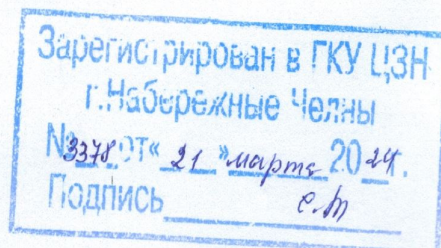 Зарегистрирован в ГКУ ЦЗН
г.Набережные Челны
№3378 от«21»марта 2024.
Подпись